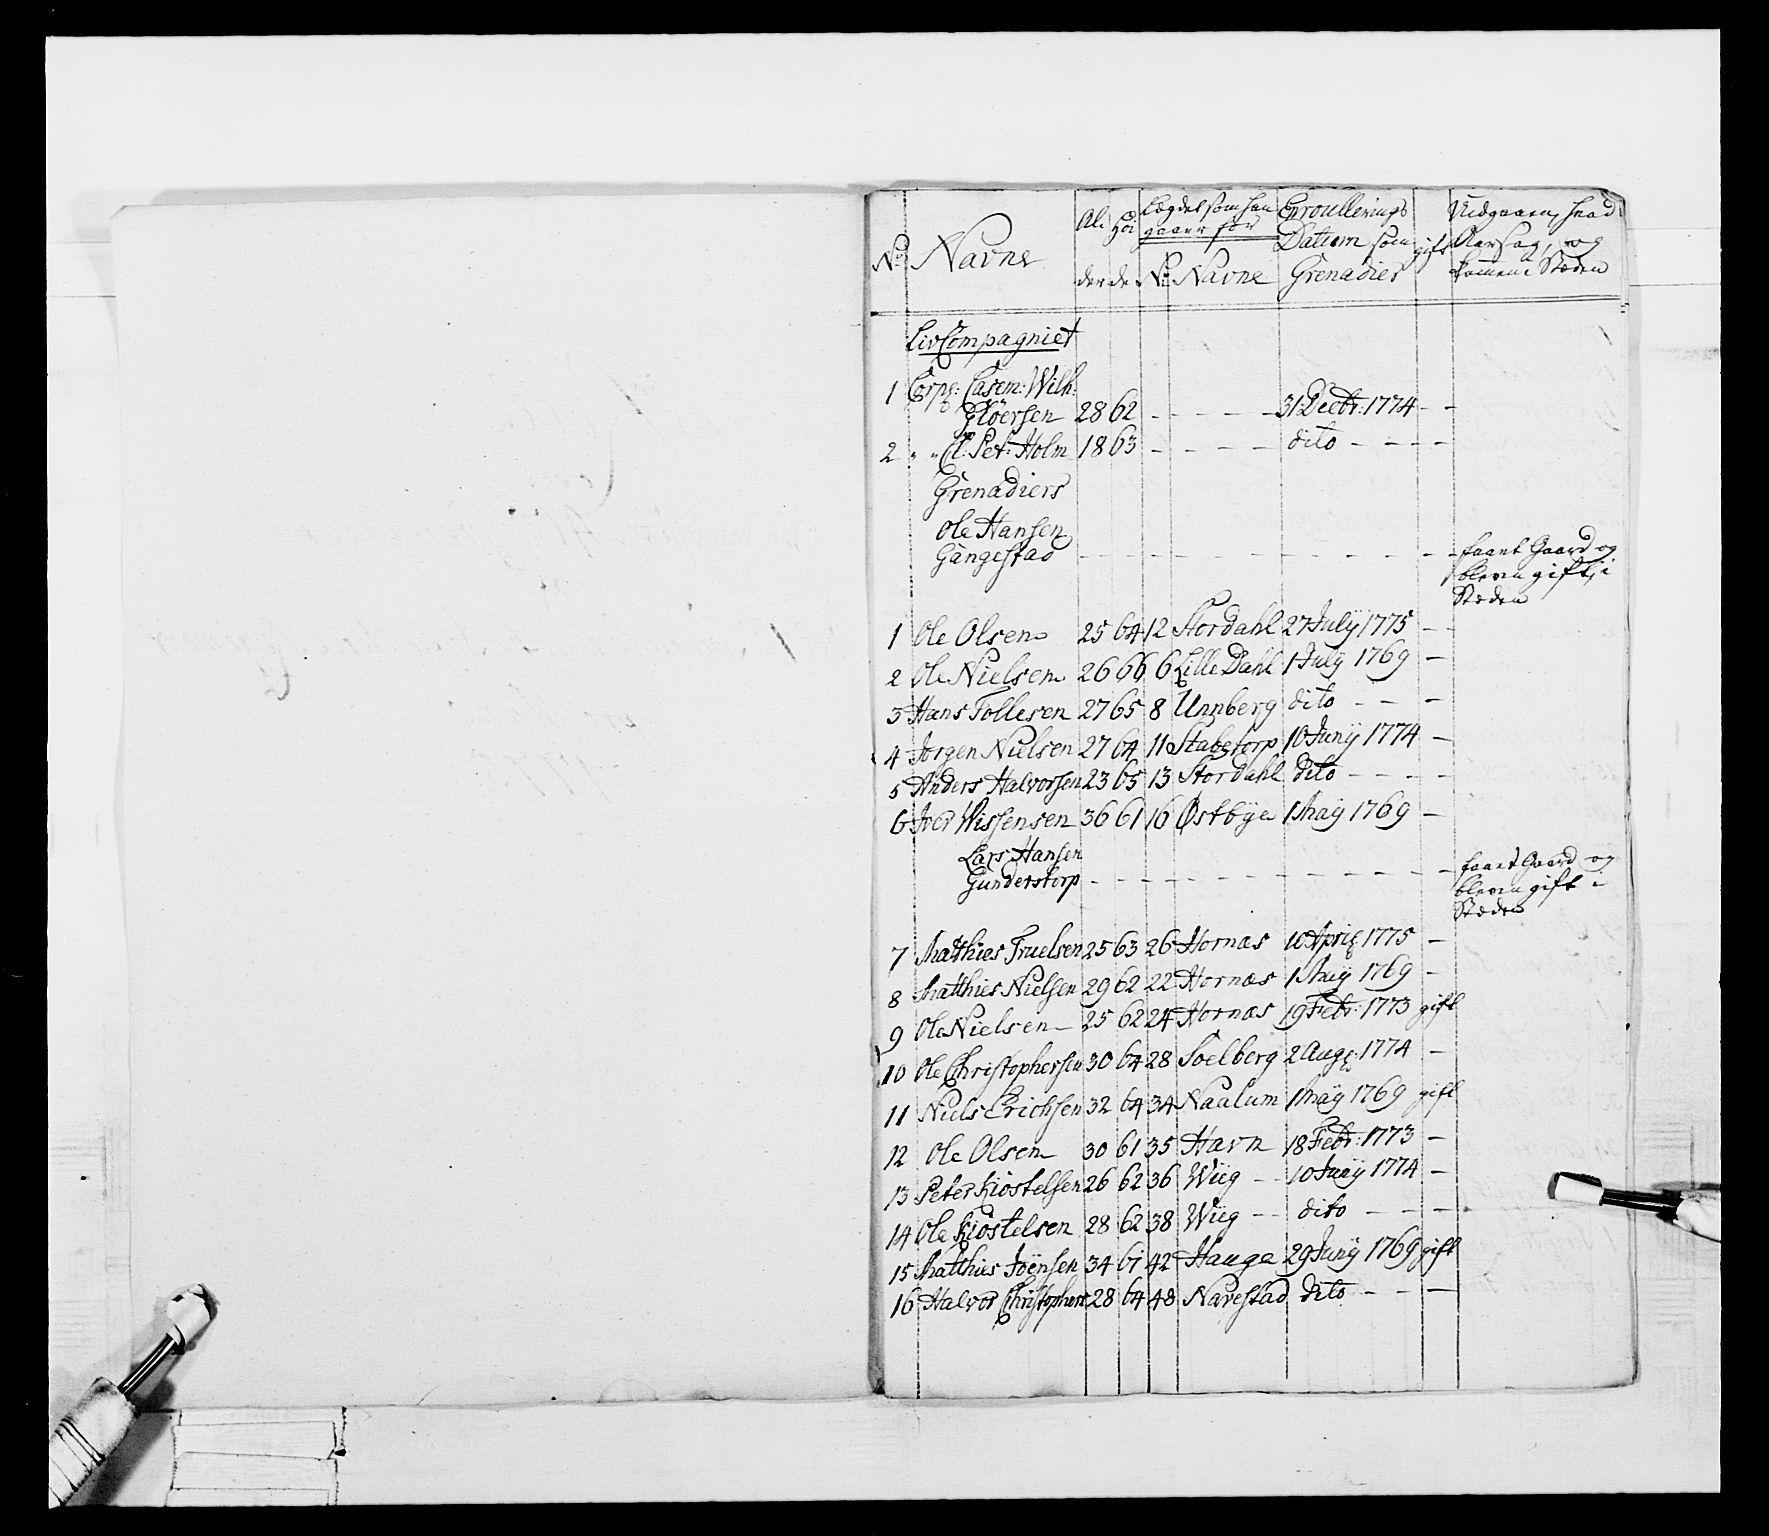 No Navne Al der Høi de Lægdet som han gaaer for No Navne Enroullerings Datum som Grenadier gift Udgaaen, hvad Aarsag, og kommen i Stæden
LivCompagniet
1 Corp: Casem: Wilh:
Glöersen 28 62 - - - - - 31 Decbr: 1774 - -
2 " " Cl: Pet: Holm 18 63 - - - - dito - - - -
Grenadiers
Ole Hansen
Gangestad - - - - - - - - - - faaet Gaard og
bleven gift, i
Stæden
1 Ole Olsen 25 64 12 Stordahl 27 Julÿ 1775 - -
2 Ole Nielsen 26 66 6 Lille Dahl 1 Julÿ 1769 -
3 Hans Tollesen 27 65 8 Unnberg dito - - -
4 Jørgen Nielsen 27 64 11 Stabetorp 10 Junÿ 1774 -
5 Anders Halvorsen 23 65 13 Stordahl dito - - - -
6 Iver Nissensen 36 61 16 Østbye 1 Maÿ 1769 -
Lars Hansen
Gunderstorp - - - - - - - - - - faaet Gaard og
bleven gift i
Stæden
7 Matthies Truelsen 25 63 26 Hornæs 10 April 1775 -
8 Matthies Nielsen 29 62 22 Hornæs 1 Maÿ 1769 -
9 Ole Nielsen - 25 62 24 Hornæs 19 Febr: 1773 gift
10 Ole Christophersen 30 64 28 Soelberg 2 Aug: 1774 -
11 Niels Erichsen 32 64 34 Naalum 1 Maÿ 1769 gift
12 Ole Olsen 30 61 35 Havn 18 Febr: 1773 -
13 Peter Kiostelsen 26 62 36 Wiig - 10 Junÿ 1774 -
14 Ole Kiostelsen 28 62 38 Wiig - - dito - - -
15 Matthies Joensen 34 61 42 Hauge 29 Junÿ 1769 gift
16 Halvor Christophers 28 64 48 Navestad dito - - -